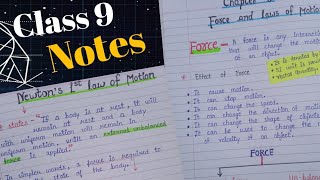 Class 9
Notes
Newton's 1st law of Motion
states - If a body is at rest, it will
remain at rest and a body
with uniform motion will remain in
uniform motion until an external unbalanced
force is applied
In simpler words, a force is required to
state of the body.
Chapter
Force and laws of Motion
Force - A force is any
that will change the motion
of an object.
It is denoted by
SI unit is
Vector quantity
Effect of Force
It cause motion.
It can stop motion.
It can change the speed.
It can change the direction of motion
It can change the shape of an object.
It can be used to change the
of velocity of an object.
FORCE